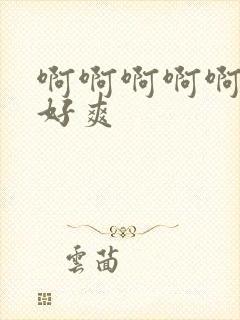 啊啊啊啊啊
好爽
雲茴